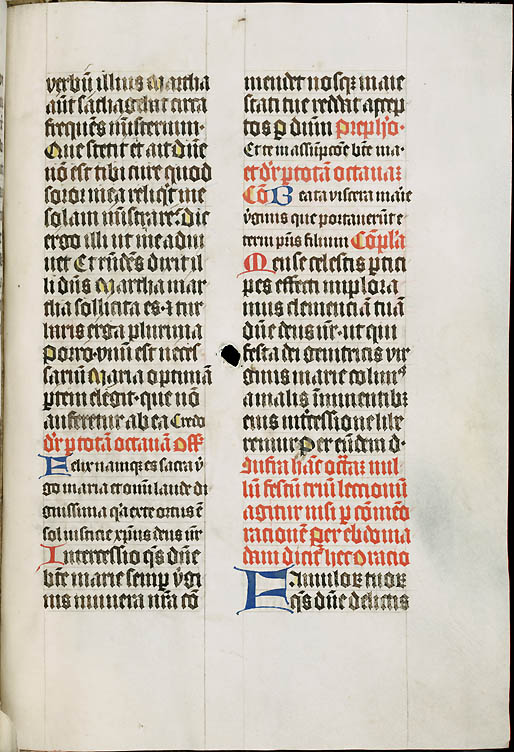 verbū illius Martha
aūt satagebat circa
frequēs ministerium.
Que stetit et ait dñe
nō est tibi cure quod
soror mea reliqit me
solam ministrare. Dic
ergo illi ut me adiu
uet Et rñdēs dixit il
li dñs Martha mar
tha sollicita es. ⁊ tur
baris erga plurima
Porro. vnū est neces
sariū Maria optimā
ptem elegit. que nō
auferetur ab ea Credo
dr̄ p totā octauā Off̄
Felix namqꝫ es sacra v̄
go maria et omī laude di
gnissima qꝛ ex te ortus ē
sol iusticie xp̄us deus nr̄
Intercessio qs̄ dñe
bt̄e marie semꝑ v̄gi
nis munera nr̄a cō
mendet nosqꝫ maie
stati tue reddat accep
tos p dñm Prephō.
Et te in assūpcōe bt̄e ma.
et dr̄ p totā octauaꝫ
Cōº Beata viscera marie
v̄ginis que portauerūt e
terni pr̄is filium Cōpl'a
Mense celestis ptici
pes effecti implora
mus clemenciā tuā
dñe deus nr̄. ut qui
festa dei genitricis vir
ginis marie colimꝰ
a malis īminentibꝫ
eius intercessione libe
remur Per eūdem d.
Infra hāc octauā nul
lū festū triū lectionū
agitur nisi p cōmeō
rationē Per ebdoma
dam dicit̄ hec Oratio
Famuloꝝ tuoꝝ
qs̄ dñe delictis